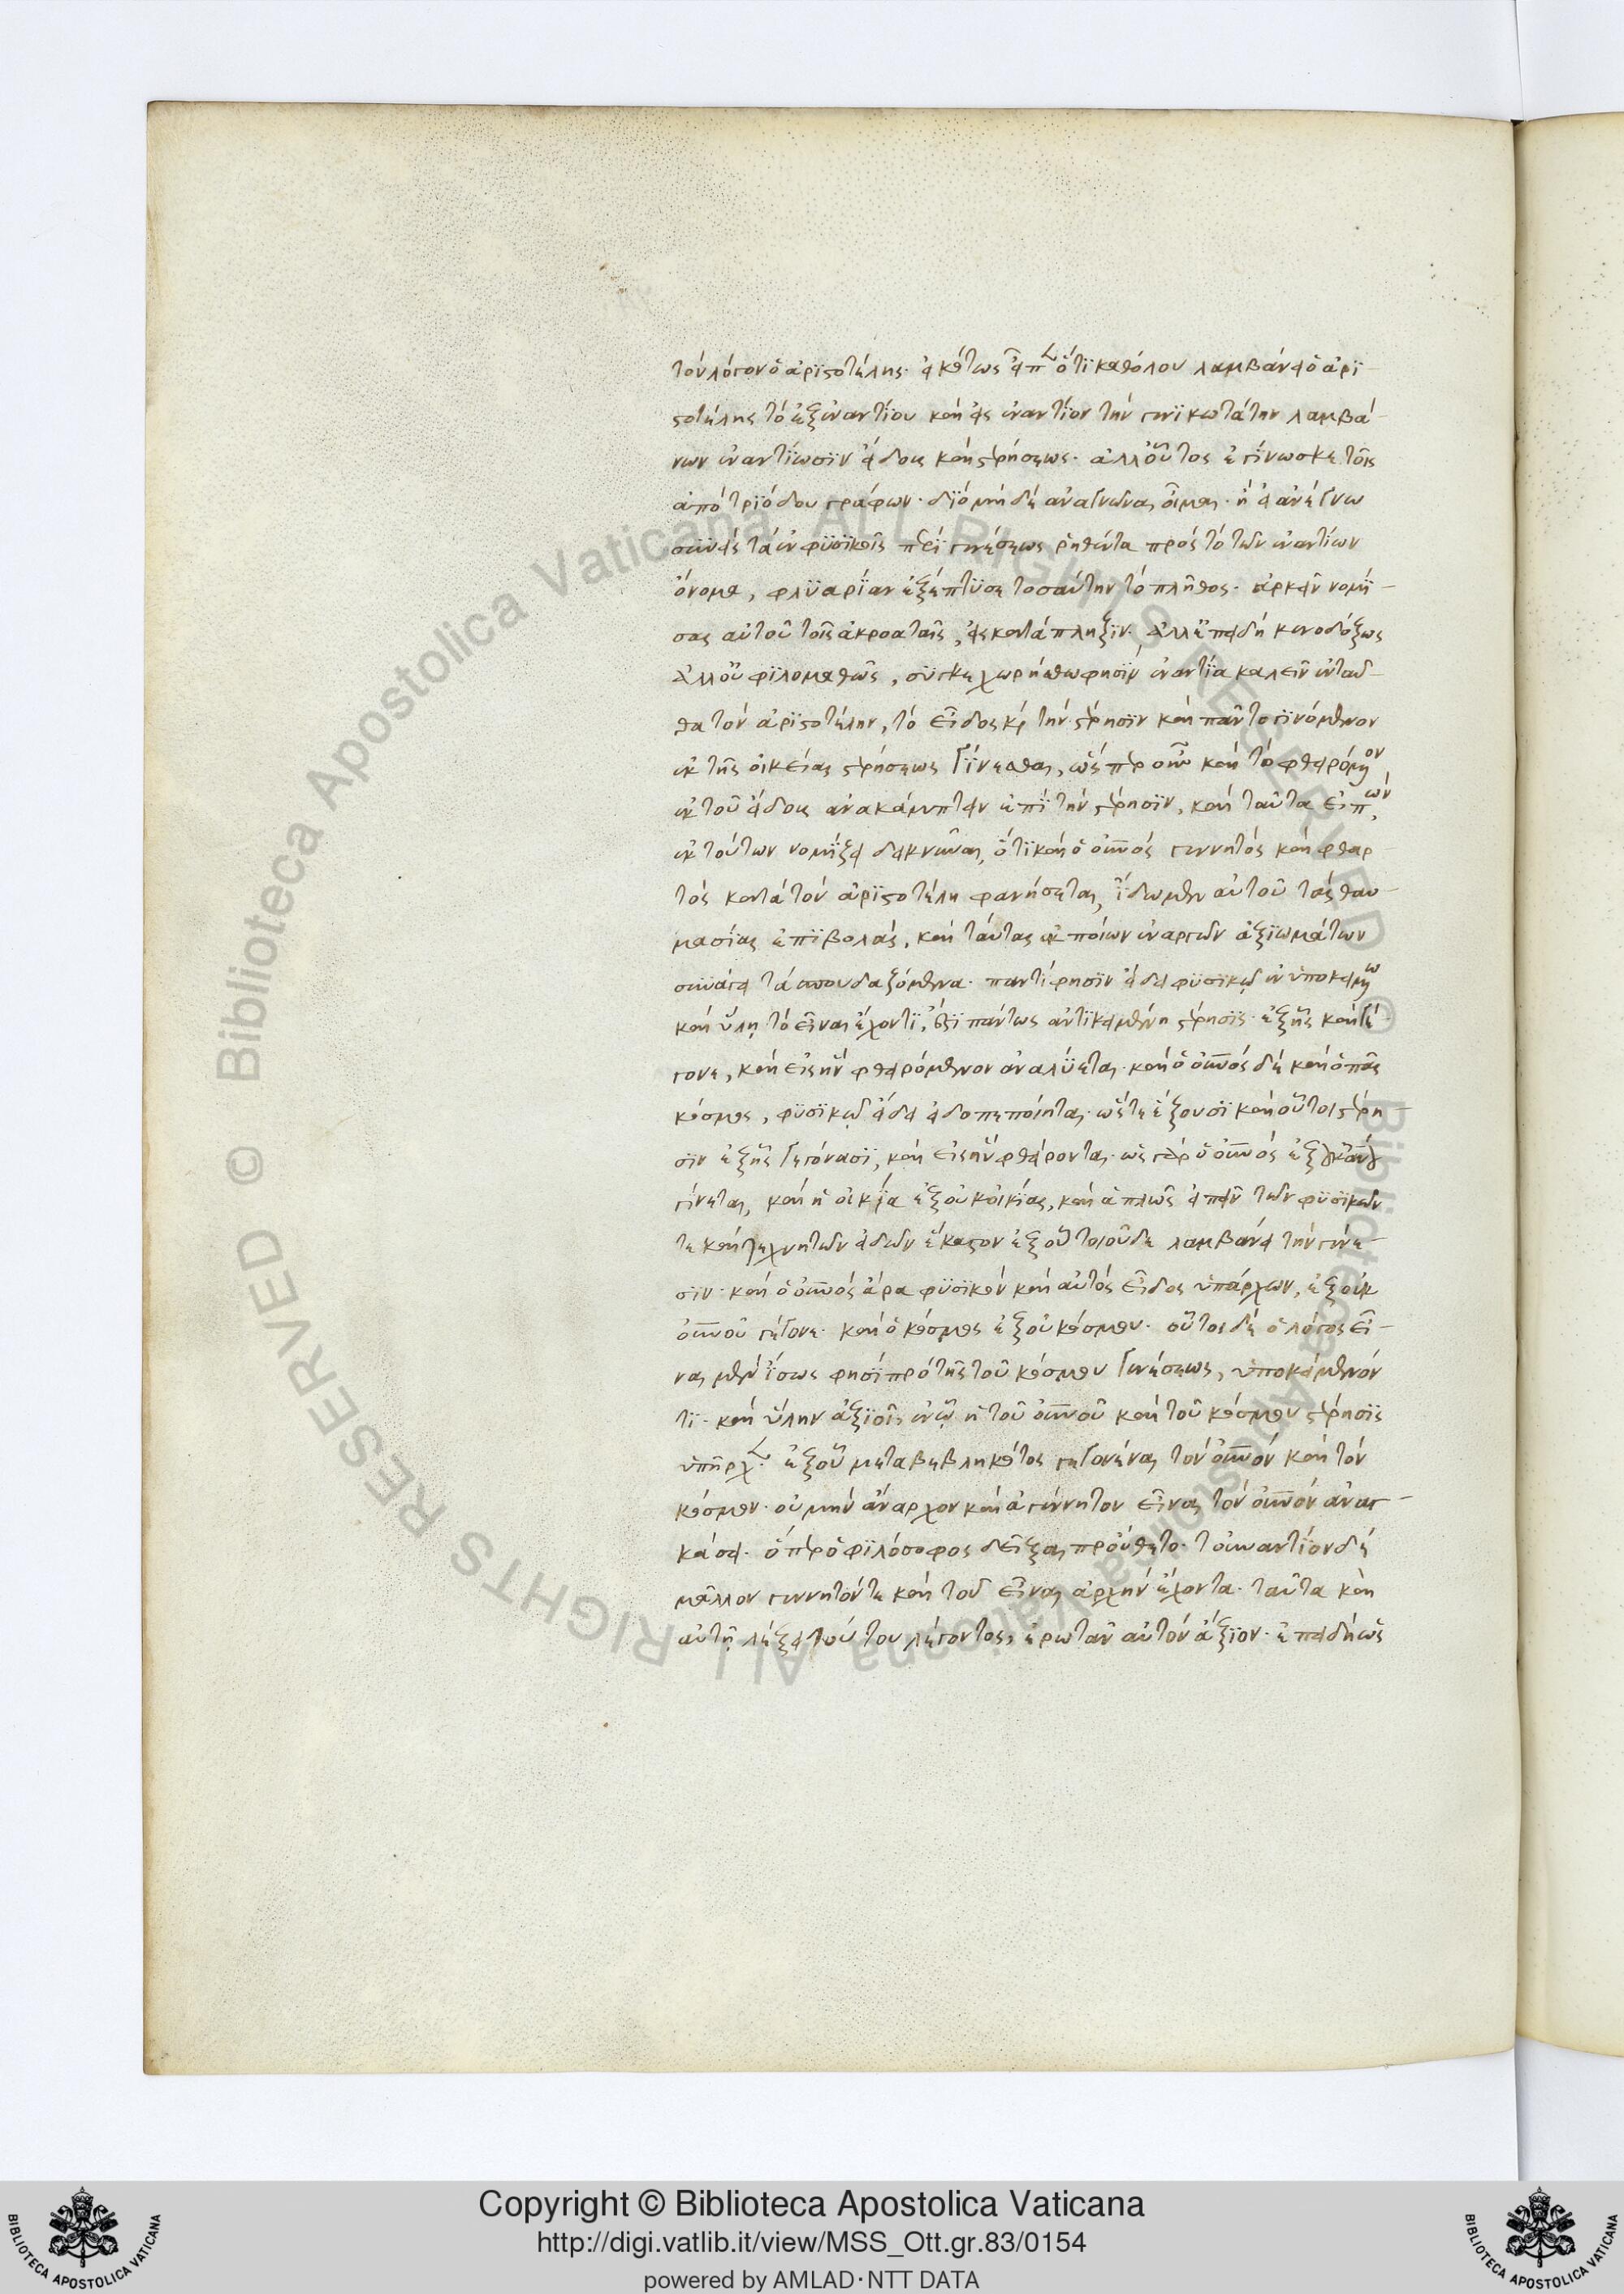 τὸν λόγον ὁ ἀρϊστοτέλης· εἰκότως εἶπεν ὅτι καθόλου λαμβάνει ὁ ἀρϊ-
στοτέλης τὸ ἐξεναντίου καὶ εἰς ἐναντίον τὴν γενϊκωτάτην λαμβά-
νων ἐναντίωσϊν εἴδους καὶ στερήσεως· ἀλλ' οὗτος ἐγίνωσκε τοῖς
ἀπὸ τριόδου γράφων· διὸ μηδὲ ἀναγνῶναι οἶμαι· ἢ εἰ ἀνέγνω
συνεὶς τὰ ἐν φυσικοῖς περὶ γενέσεως ῥηθέντα πρὸς τὸ τῶν ἐναντίων
ὄνομα, φλϋαρίαν ἐξέπτυσε τοσαύτην τὸ πλῆθος· ἀρκεῖν νομί-
σας αὐτοῦ τοῖς ἀκροαταῖς, εἰς κατάπληξιν· ἀλλ' ἐπειδὴ κενοδόξως
ἀλλ' οὐ φιλομαθῶς, συγκεχωρήσθω φησὶν ἐναντία καλεῖν ἐνταῦ-
θα τὸν ἀριστοτέλην, τὸ εἶδος καὶ τὴν στέρησιν καὶ πᾶν τὸ γινόμενον
ἐκ τῆς οἰκείας στερήσεως γίνεσθαι, ὥσπερ οὖν καὶ τὸ φθειρόμενον
ἐκ τοῦ εἴδους ἀνακάμπτειν ἐπὶ τὴν στέρησιν, καὶ ταῦτα εἰπών,
ἐκ τούτων νομίζει δεικνύναι, ὅτι καὶ ὁ οὐνὸς γεννητὸς καὶ φθαρ-
τὸς κατὰ τὸν ἀριστοτέλη φανήσεται, ἴδωμεν αὐτοῦ τὰς θαυ-
μασίας ἐπιβολάς, καὶ ταύτας ἐκ ποίων ἐναργῶν ἀξιωμάτων
συνάγει τὰ σπουδαζόμενα· παντί φησιν εἴδει φυσικῷ ἐν ὑποκειμένω
καὶ ὕλῃ τὸ εἶναι ἔχοντι, ἐστὶ πάντως ἀντικειμένη στέρησις· ἐξ ἧς καὶ γέ-
γονε, καὶ εἰς ἣν φθειρόμενον ἀναλύεται· καὶ ὁ οὐνὸς δὲ καὶ ὁ πᾶς
κόσμος, φυσικῷ εἴδει εἰδοπεποίηται· ὥστε ἕξουσι καὶ οὗτοι στέρη-
σιν ἐξ ἧς γεγόνασι, καὶ εἰς ἣν φθείρονται· ὡς γὰρ ὁ οὐνὸς ἐξ οὐκ ἀνου
γίνεται, καὶ ἡ οἰκία ἐξ οὐκ οἰκίας, καὶ ἁπλῶς εἰπεῖν τῶν φυσικῶν
τε καὶ τεχνητῶν εἰδῶν ἕκαστον ἐξ οὐ τοιοῦδε λαμβάνει τὴν γένε-
σιν· καὶ ὁ οὐνὸς ἄρα φυσικὸν καὶ αὐτὸς εἶδος ὑπάρχων, ἐξ οὐκ
οὐνοῦ γέγονε· καὶ ὁ κόσμος ἐξ οὐ κόσμου· οὗτος δὲ ὁ λόγος εἶ-
ναι μὲν ἴσως φησὶ πρὸ τῆς τοῦ κόσμου γενέσεως, ὑποκείμενόν
τι· καὶ ὕλην ἀξιοῖ, ἐν ᾧ ἡ τοῦ οὐνοῦ καὶ τοῦ κόσμου στέρησις
ὑπῆρχεν· ἐξ οὗ μεταβεβληκότος γεγονέναι τὸν οὐνὸν καὶ τὸν
κόσμον· οὐ μὴν ἄναρχον καὶ ἀγέννητον εἶναι τὸν οὐνὸν ἀναγ-
κάσει· ὅπερ ὁ φιλόσοφος δεῖξαι προὔθετο· τοὐναντίον δὲ
μᾶλλον γεννητόν τε καὶ τοῦ εἶναι ἀρχὴν ἔχοντα· ταῦτα καὶ
αὐτῇ λέξει τούτου λέγοντος, ἐρωτᾶν αὐτὸν ἄξιον· ἐπειδὴ ὡς
Copyright © Biblioteca Apostolica Vaticana
http://digi.vatlib.it/view/MSS_Ott.gr.83/0154
powered by AMLAD·NTT DATA